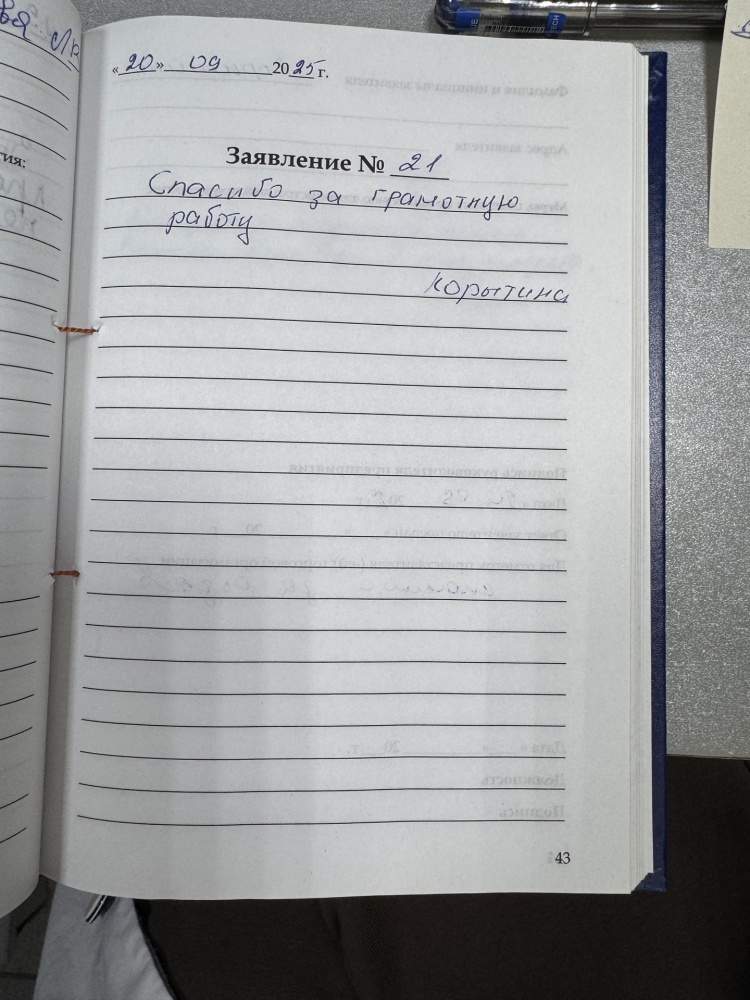 «20» 09 2025 г.
Заявление № 21
Спасибо за грамотную
работу
Корытина
43
гия: